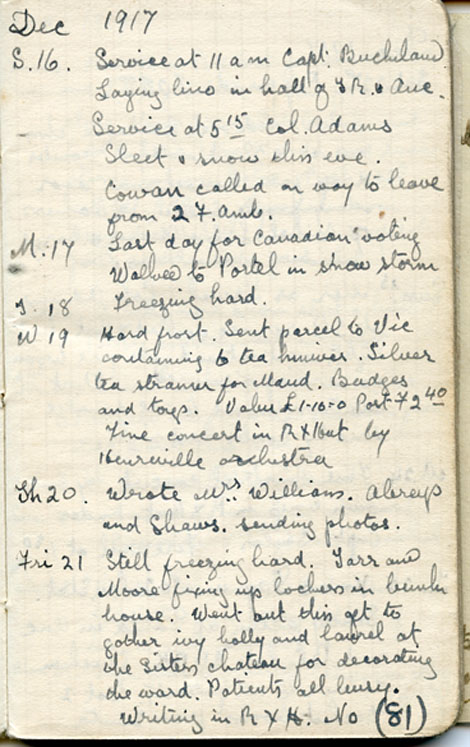 Dec 1917
S. 16. Service at 11 am Capt. Bucheland
Laying lino in hall of S R. & Anc.
Service at 5 15 Col. Adams
Sleet & snow this eve.
Cowan called on way to leave
from 2 F. Amb.
M. 17 Last day for Canadian voting
Walked to Portel in snow storm
T. 18 Freezing hard.
W 19 Hard frost. Sent parcel to Vic
containing 6 tea knives. Silver
tea strainer for Maud. Badges
and toys. Value £1-10=0 Post F2 40
Fine concert in R X Hut by
Henreville orchestra
Th 20. Wrote Mrs Williams.
and Shaws. sending photos.
Fri 21 Still freezing hard. Tarr and
Moore fixing up lockers in
house. Went out this aft to
gather ivy holly and laurel at
the Sisters chateau for decorating
the ward. Patients all busy.
Writing in R X H. No (81)